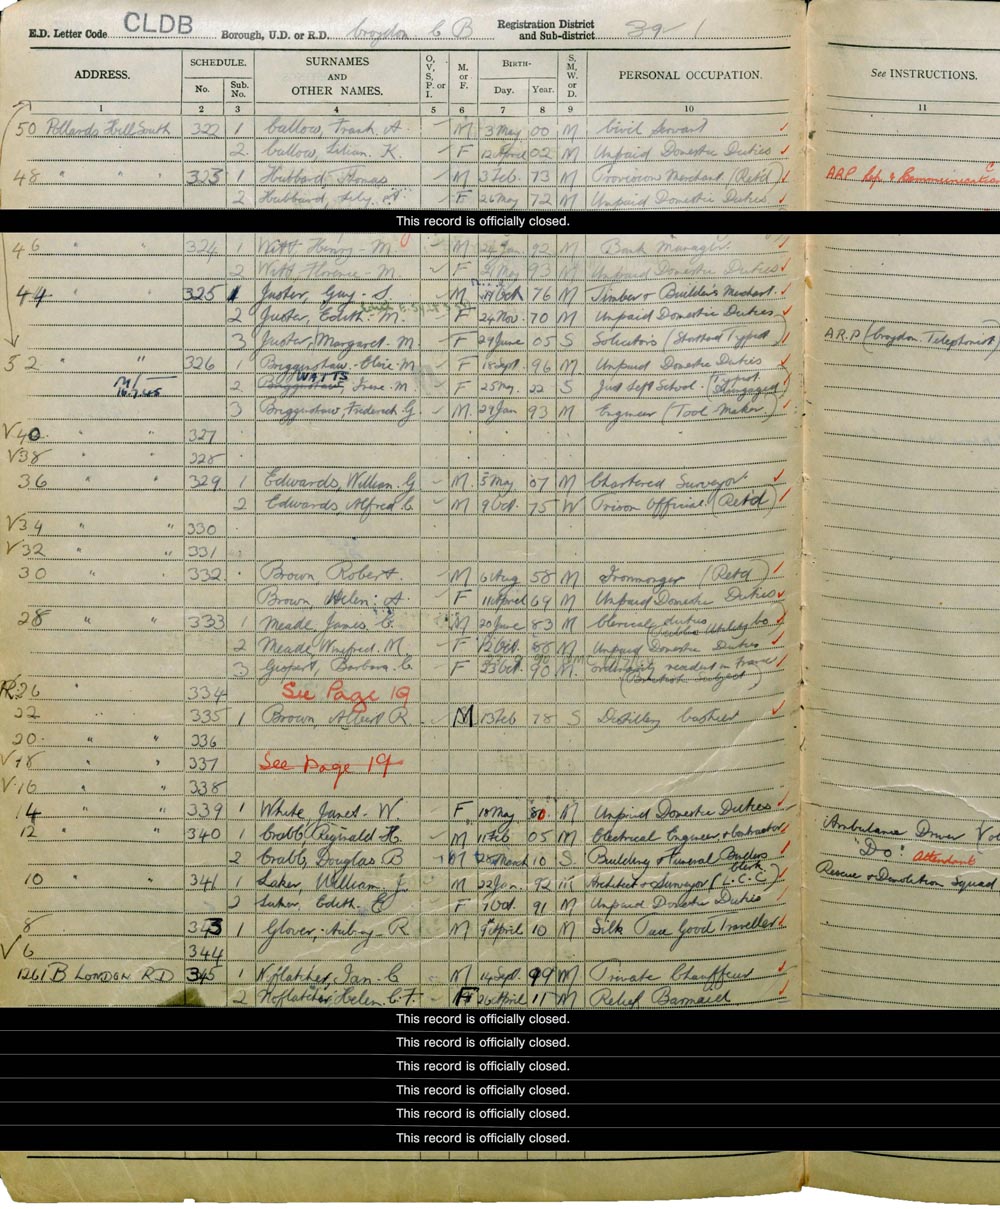 E.D. Letter Code CLDB Borough, U.D. or R.D. Croydon C B Registration District and Sub-district 39/1
ADDRESS. SCHEDULE. No. Sub. No. SURNAMES AND OTHER NAMES. O, V, S, P. or I. M. or F. BIRTH- Day. Year. S. M. W. or D. PERSONAL OCCUPATION. See INSTRUCTIONS.
1 2 3 4 5 6 7 8 9 10 11
50 Pollards Hill South 322 1 Callow, Frank A. M 3 May 00 M Civil Servant
2 Callow, Lilian K. F 12 April 02 M Unpaid Domestic Duties
48 " " 323 1 Hubbard, Thomas M 3 Feb. 73 M Provision Merchant (Retd) ARP Rep. & Communication
2 Hubbard, Lily F 26 May 72 M Unpaid Domestic Duties
This record is officially closed.
46 " " 324 1 Witt Henry - M. M 24 Jan. 92 M Bank Manager.
2 Witt Florence - M. F May 93 M Unpaid Domestic Duties
44 " " 325 1 Juster, Guy - S. M Oct 76 M Timber & Builders Merchant
2 Juster, Edith - M. F 24 Nov. 70 M Unpaid Domestic Duties
3 Juster, Margaret M. F 29 June 05 S Solicitors (Shorthand Typist) A.R.P (Croydon Telephonist)
52 " " 326 1 Brigginshaw - Clive - M. F 18 Sept. 96 M Unpaid Domestic Duties
WATTS
16.7.45 2 Brigginshaw, Irene - M. F 25 May. 22 S Just Left School. (Typist
3 Brigginshaw, Frederick G. M. 29 Jan 93 M Engineer (Tool Maker)
V 40 " " 327
V 38 " " 328
36 " " 329 1 Edwards, William G M. 5 May 07 M Chartered Surveyor
2 Edwards Alfred C. M 9 Oct. 75 W Prison Official. (Retd)
V 34 " " 330
V 32 " " 331
30 " " 332 Brown Robert. M 6 Aug 58 M Ironmonger (Retd)
Brown, Helen: A. F 11 April 69 M Unpaid Domestic Duties
28 " " 333 1 Meade, James C. M 20 June 83 M Clerical duties (Public Utility Co)
2 Meade, Winifred. M. F 12 Oct. 88 M Unpaid Domestic Duties
3 Barbara. C. F 23 Oct. 90 M. ordinarily resident in France (British Subject)
26 " 334 See Page 19
22 335 1 Brown, Albert R. M 13 Feb 78 S Distillery Cashier
20 " " 336
V 18 " " 337 See Page 19
V 16 338
14 " " 339 1 White, Janet - W. F 18 May 80 M Unpaid Domestic Duties
12 " " 340 1 Crabb, Reginald H. M 11 Feb 05 M Electrical Engineer & Contractor Ambulance Driver
2 Crabb, Douglas B M March 10 S Building & Funeral Butlers Clerk "Do" Attendant
10 " " 341 1 Laker, William J. M 22 Jan. 92 M Architect & Surveyor (L.C.C) Rescue & Demolition Squad
2 Laker, Edith. E F 7 Oct. 91 M Unpaid Domestic Duties
8 343 1 Glover, Aubrey - R M 9 April 10 M Silk Piece Good Traveller
V 6 344
1261B LONDON RD 345 1 Noflatcher, Ian C M 14 Sept. 99 M Private Chauffeur
2 Noflatcher Helen. C. F. F 26 April 11 M Relief Barmaid
This record is officially closed.
This record is officially closed.
This record is officially closed.
This record is officially closed.
This record is officially closed.
This record is officially closed.